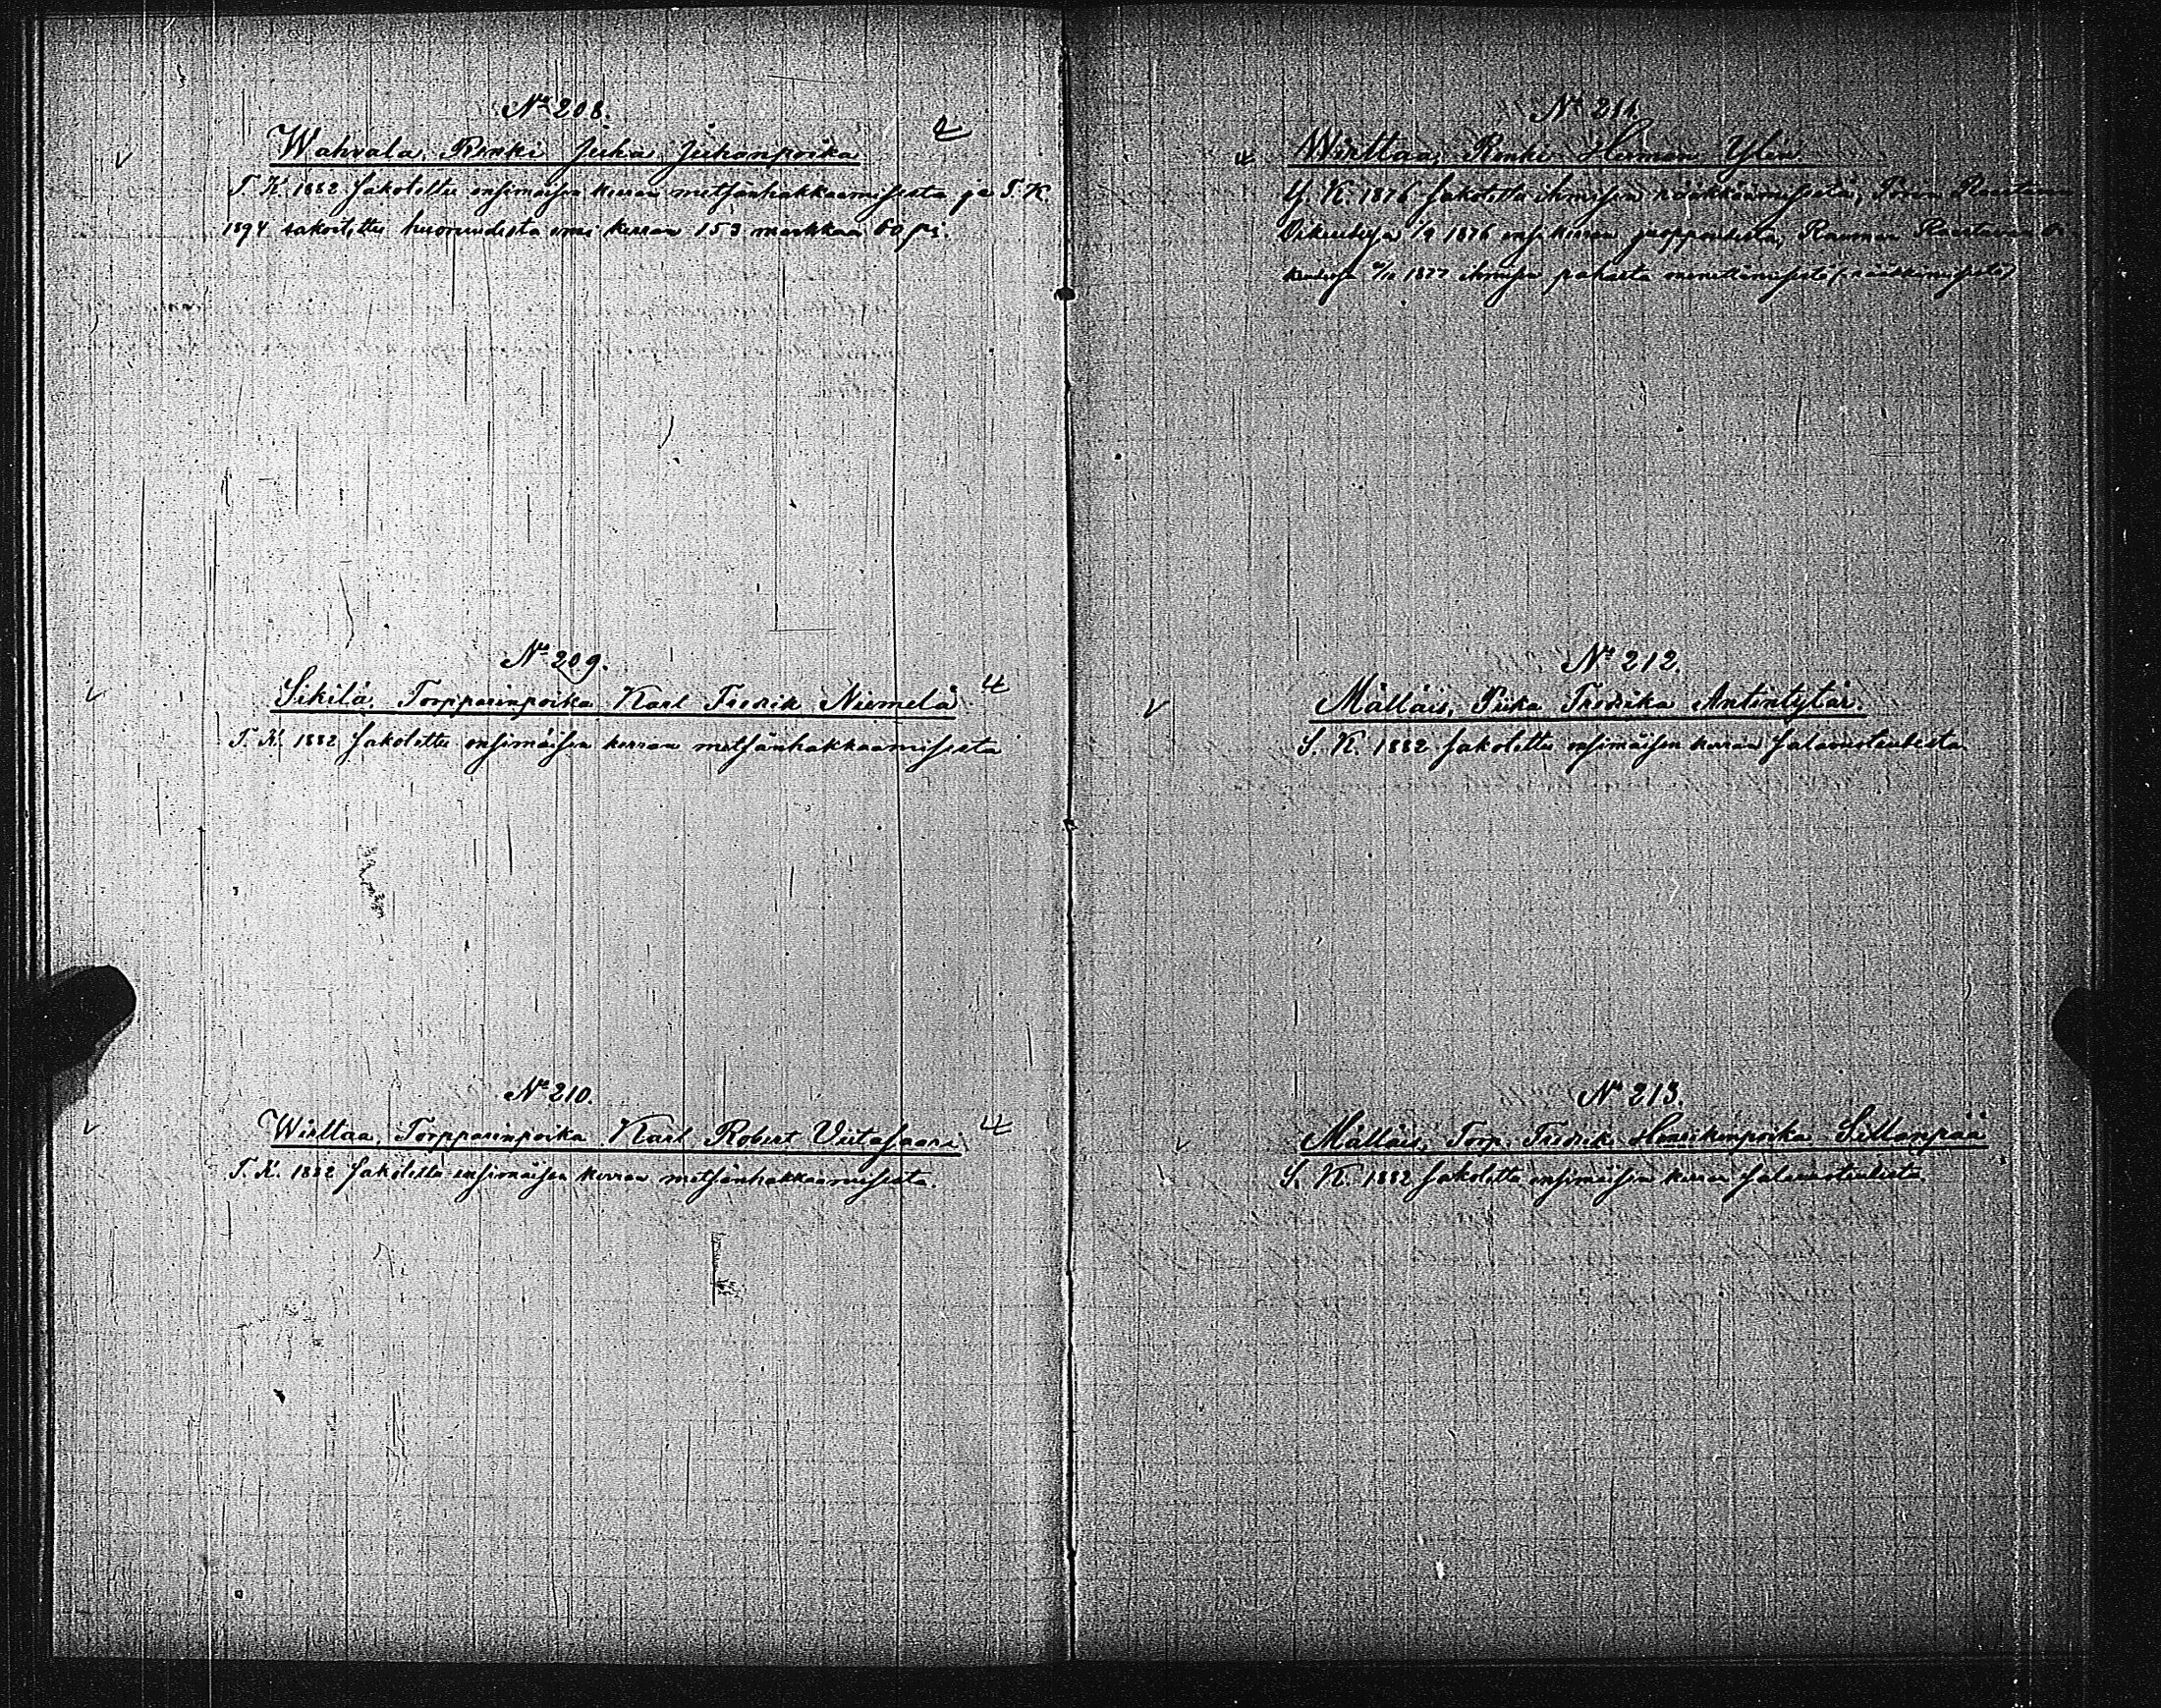 No 208.
Wahvala, Renki Juha Juhanpoika
T. K. 1882 sakotettu ensimäisen kerran metsänhakkaamisesta ja T. K.
1894 sakoitettu huoruudesta ensi kerran 153 markkaa 60 pi.
No 209.
Sikilä, Torpparinpoika Karl Fredrik Niemelä
T. K. 1882 sakotettu ensimäisen kerran metsänhakkaamisesta
No 210.
Wirttaa, Torpparinpoika Karl Robert Viitasaari
T. K. 1882 sakotettu ensimäisen kerran metsänhakkaamisesta.
No 211.
Wirttaa, Renki Herman Ylén
K. 1876 sakotettu ihmisen rääkkäämisestä, Porin Raastuvan
Oikeudessa 1876 ens. kerran juoppoudesta, Rauman Raastuvan Oi-
keudessa 1877 ihmisen pahasta menettämisestä (rääkkämisestä)
No 212.
Mälläis, Piika Fredrika Antintytär.
S. K. 1882 sakotettu ensimäisen kerran salavuoteudesta
No 213.
Mälläis, Torp. Fredrik Henrikinpoika Sillanpää
S. K. 1882 sakotettu ensimäisen kerran salavuoteudesta.